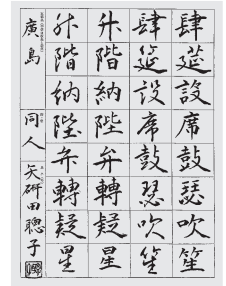 肆筵設席鼓瑟吹笙
肆筵設席鼓瑟吹笙
升階納陛弁轉疑星
升階納陛弁轉疑星
廣島 同人 矢研田聰子